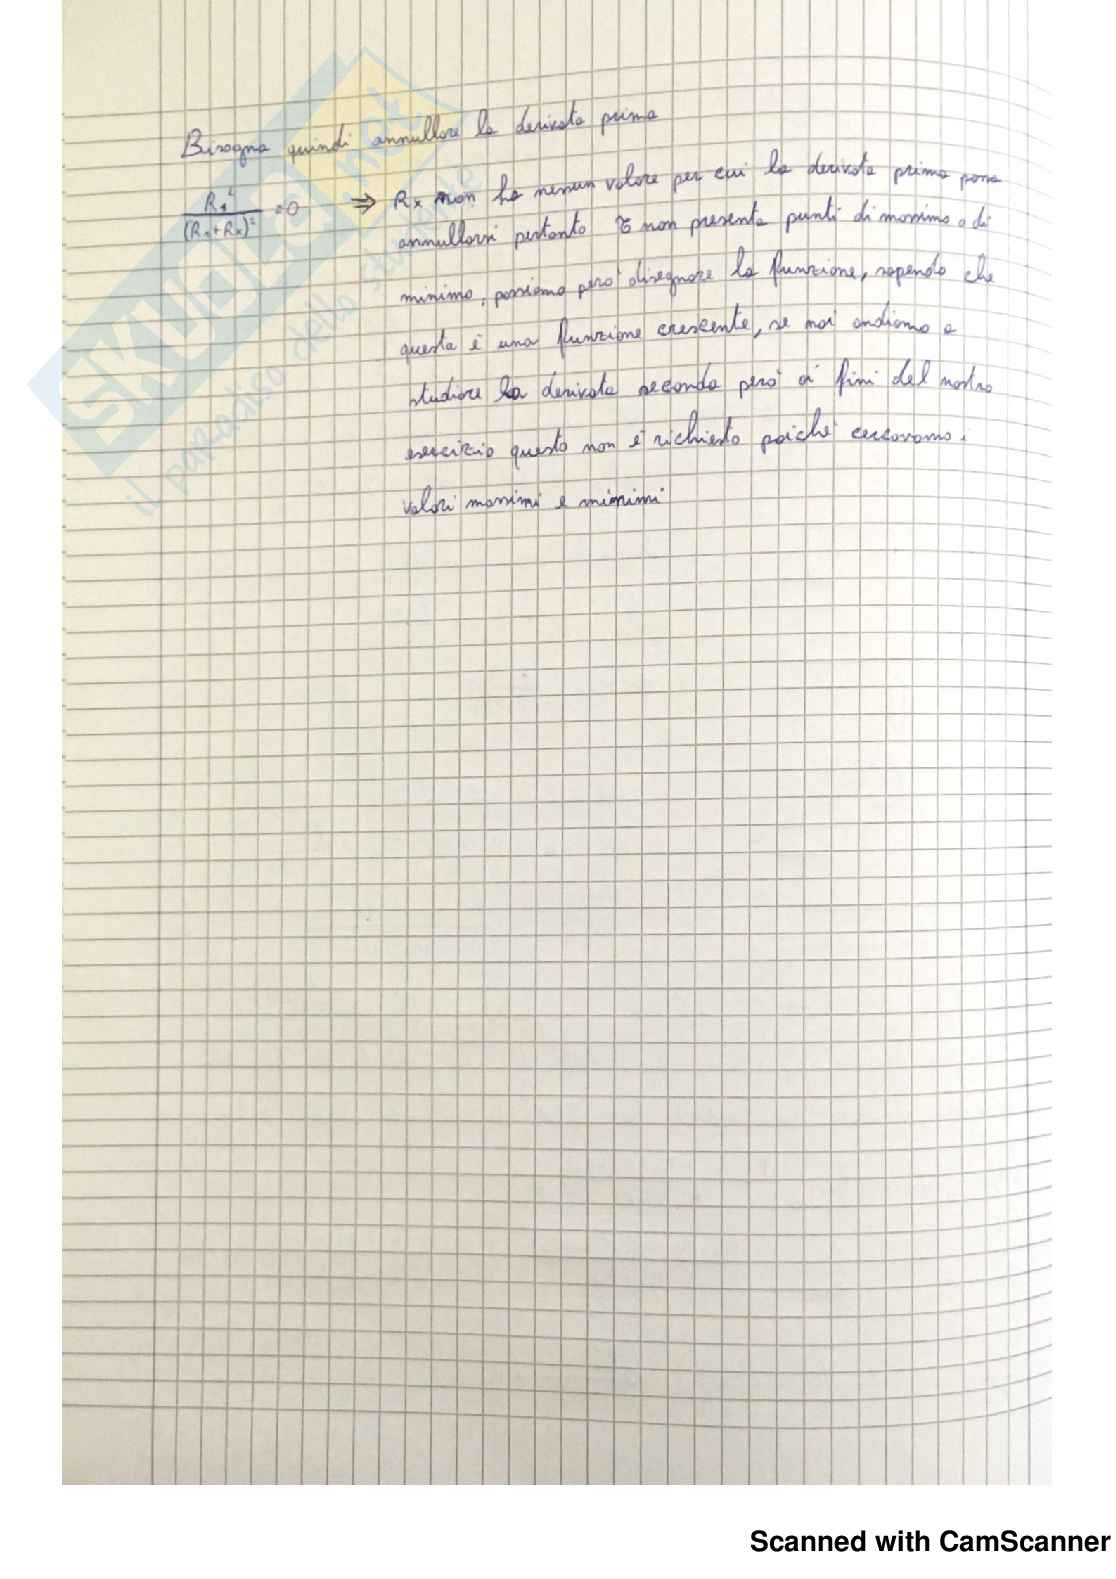 Bisogna quindi annullare la derivata prima
R₁² / (R₁+Rx)² = 0 ⇒ Rx non ha nessun valore per cui la derivata prima possa
annullarsi pertanto τ non presenta punti di massimo o di
minimo, possiamo però disegnare la funzione, sapendo che
questa è una funzione crescente, se noi andiamo a
studiare la derivata seconda però ai fini del nostro
esercizio questo non è richiesto poiché cercavamo i
valori massimi e minimi
SKUOLA.net
il paradiso dello studente
Scanned with CamScanner